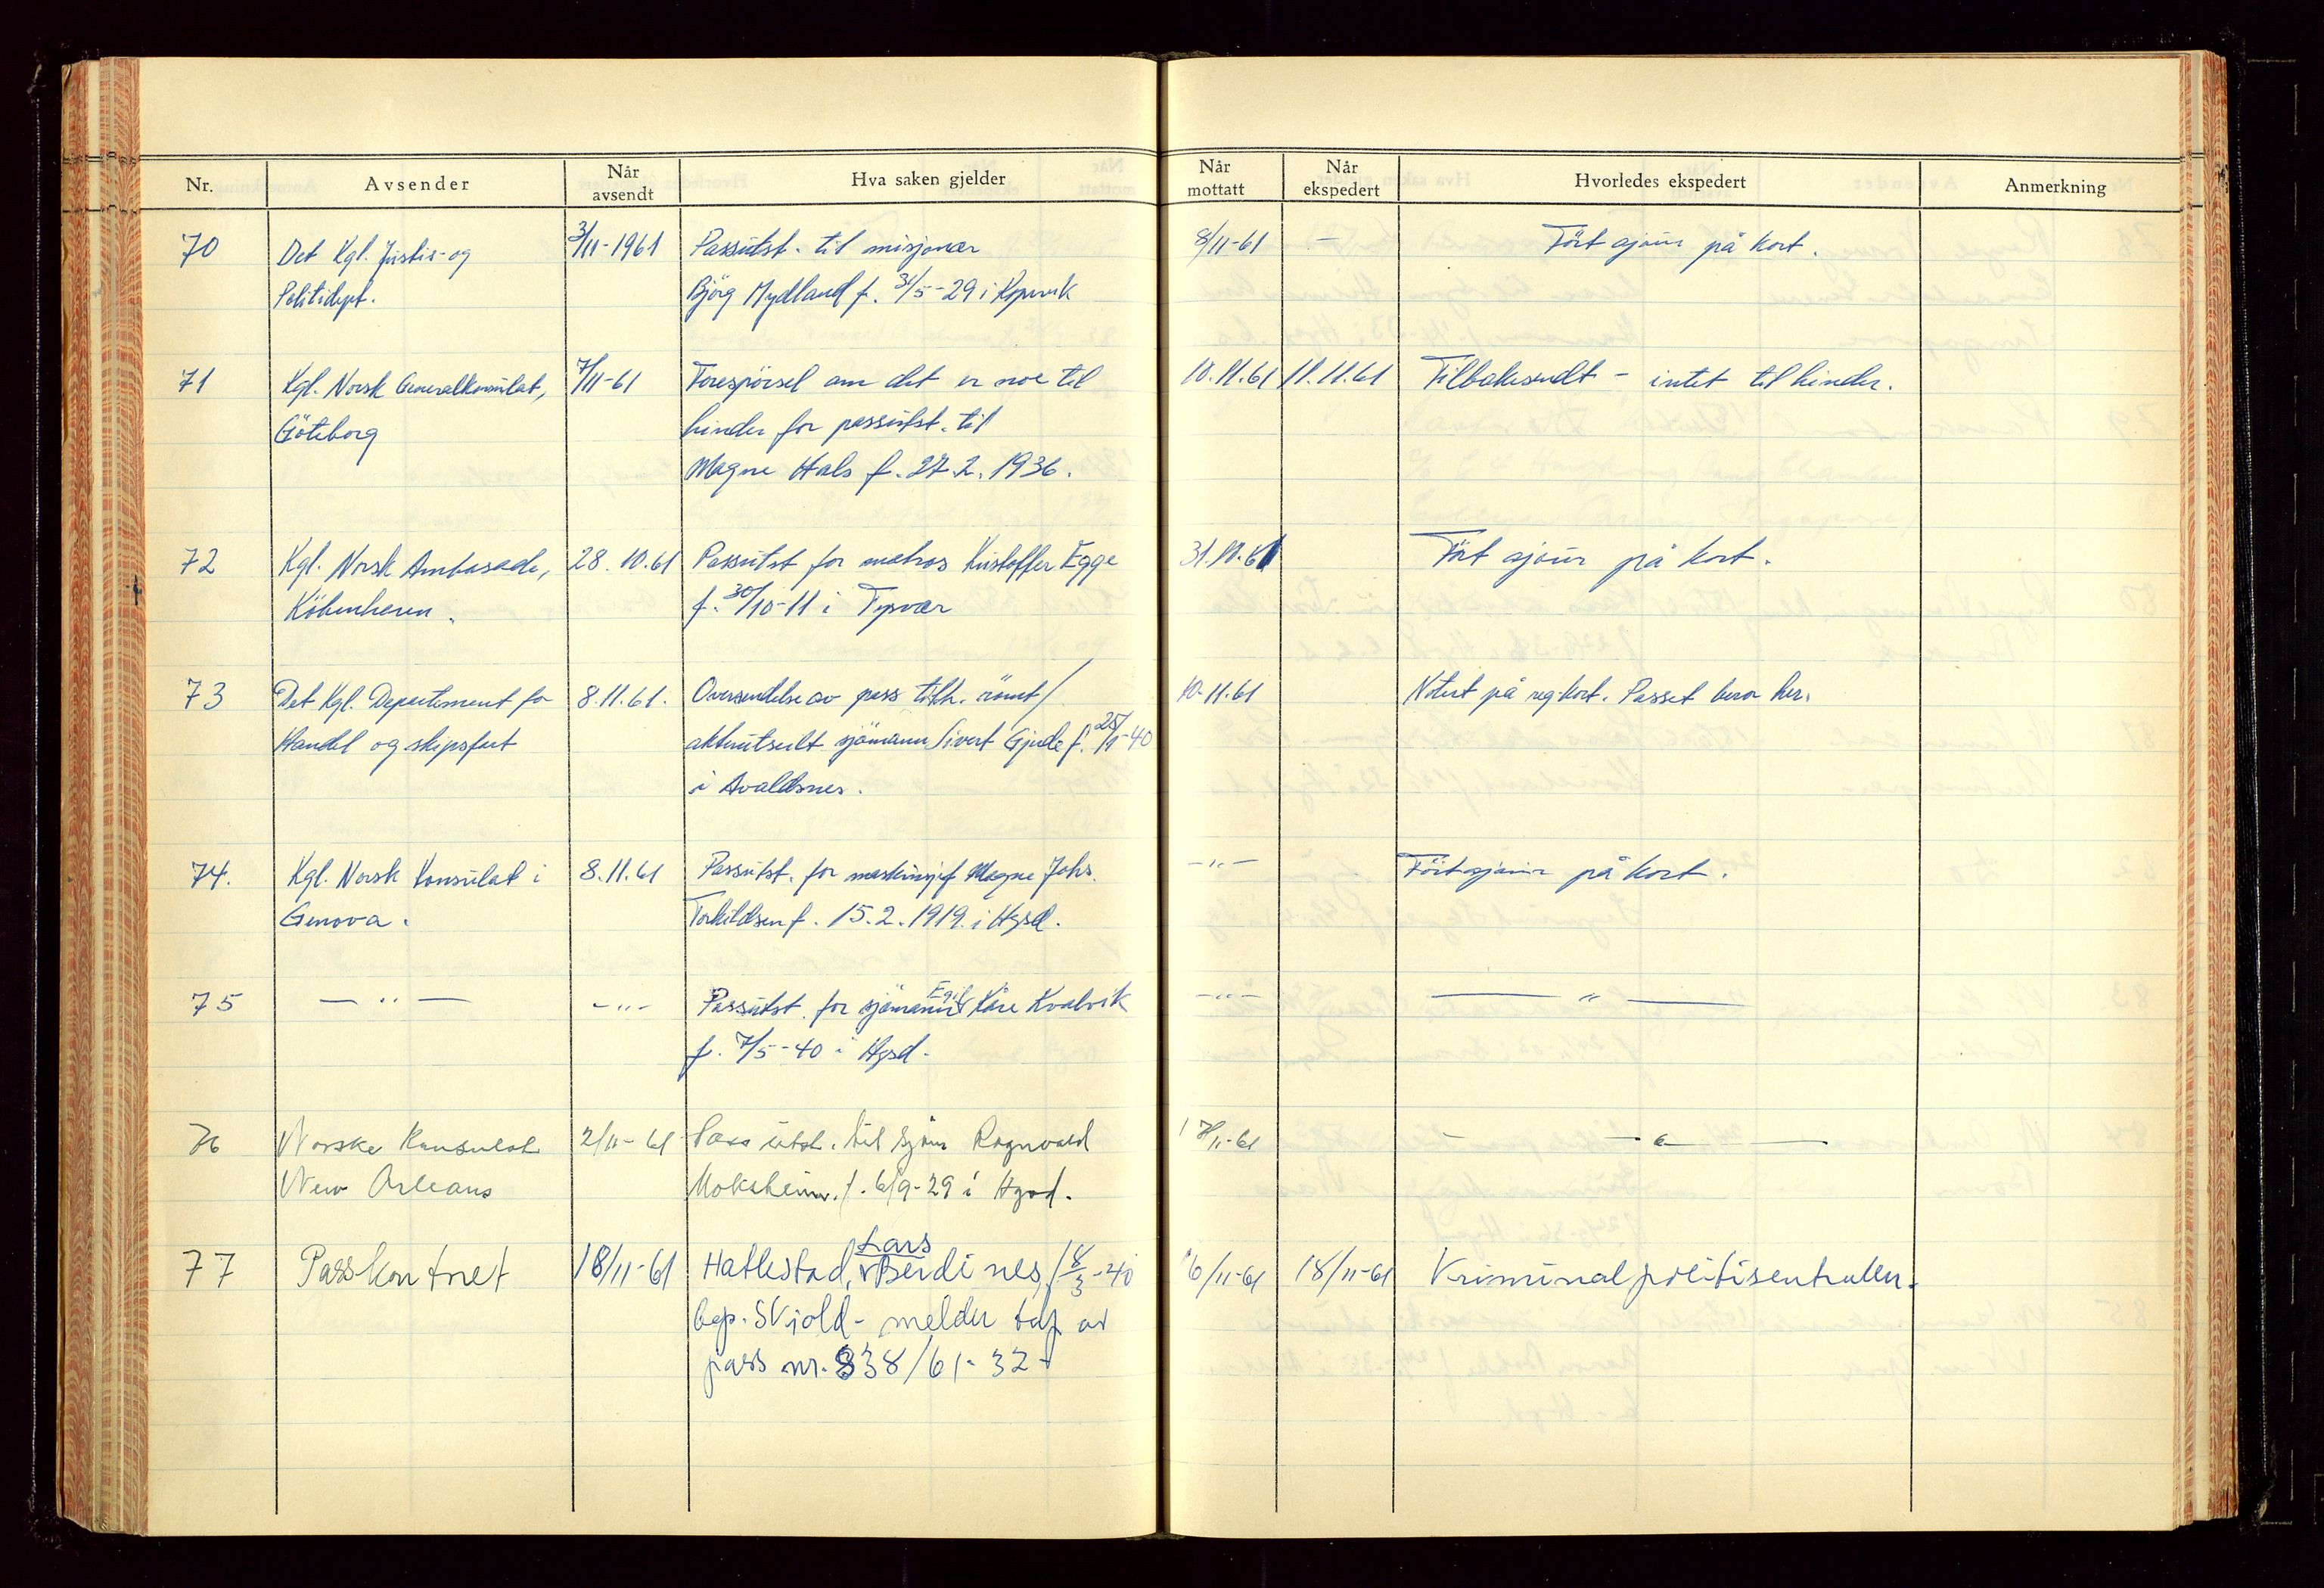 Nr. Avsender Når avsendt Hva saken gjelder Når mottatt Når ekspedert Hvorledes ekspedert Anmerkning
70 Det Kgl. Justis- og 3/11-1961 Passutst. til misjonær 8/11-61 — Ført ajour på kort.
Politidept. Bjørg Mydland f. 31/5-29 i Kopervik
71 Kgl. Norsk Generalkonsulat, 7/11-61 Forespörsel om det er noe til 10.11.61 11.11.61 Tilbakesendt - intet til hinder.
Göteborg hinder for passutst. til
Magne Hals f. 27.2.1936.
72 Kgl. Norsk Ambasade, 28.10.61 Passutst for matros Kristoffer Egge 31.10.61 Fört ajour på kort.
Köbenhavn. f. 30/10-11 i Tysvær
73 Det Kgl. Departement for 8.11.61. Oversendelse av pass tilh. römt/ 10-11.61 Notert på reg.kort. Passet beror her.
Handel og skipsfart akterutseilt sjömann Sivert Gjerde f. 25/1-40
i Avaldsnes.
74. Kgl. Norsk Konsulat i 8.11.61 Passutst. for maskinsjef Magne Johs. -"- Fört ajour på kort.
Genova. Torkildsen f. 15.2.1919. i Hgsd.
75 — " — -"- Passutst. for sjömann Egil Kåre Kvalvik -"- — " —
f. 7/5-40 i Hgsd.
76 Norske Konsulat 2/11-61 Pass utst. til sjøm Ragnvald 17/11-61 — " —
New Orleans Moksheim. f. 6/9-29 i Hgsd.
77 Passkontret 18/11-61 Hatlestad, Lars Berdines, f 8/3-40 16/11-61 18/11-61 Kriminalpolitisentralen.
bop. Skjold - melder tap av
pass nr. 838/61-32-